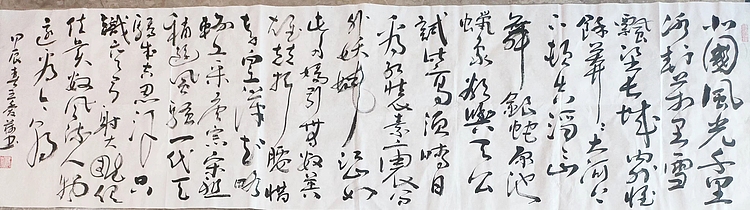 北國風光千里
冰封萬里雪
飄望長城內外惟
餘莽莽大河上
下頓失滔滔山
舞銀蛇原馳
蠟象欲與天公
試比高須晴日
看紅裝素裹分
外妖嬈江山如
此多嬌引無數英
雄競折腰惜
秦皇漢武略
輸文采唐宗宋祖
稍遜風騷一代天
驕成吉思汗只
識彎弓射大雕俱
往矣數風流人物
還看今朝
甲辰春